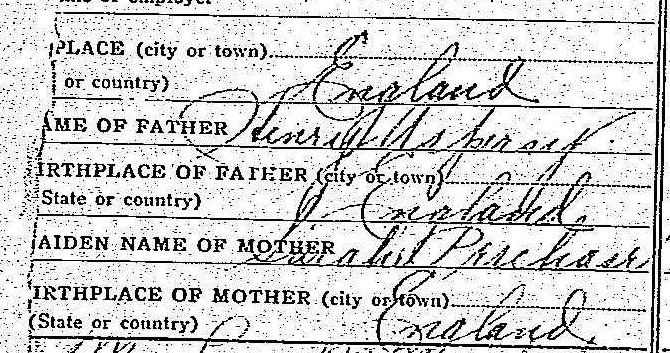 PLACE (city or town)
or country) England
AME OF FATHER Henry
IRTHPLACE OF FATHER (city or town)
State or country) England
AIDEN NAME OF MOTHER Sarah Perchase
IRTHPLACE OF MOTHER (city or town)
(State or country) England.